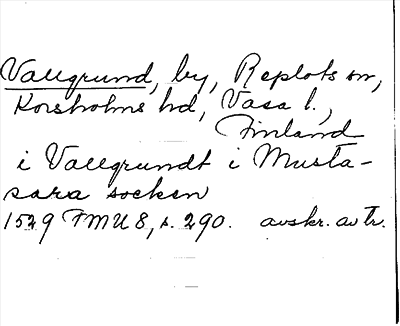 Vallgrund, by, Replots sn,
Korsholms hd, Vasa l.,
Finland
i Vallgrundt i Musta-
sara socken
1529 FMU 8, s. 290. avskr. av tr.